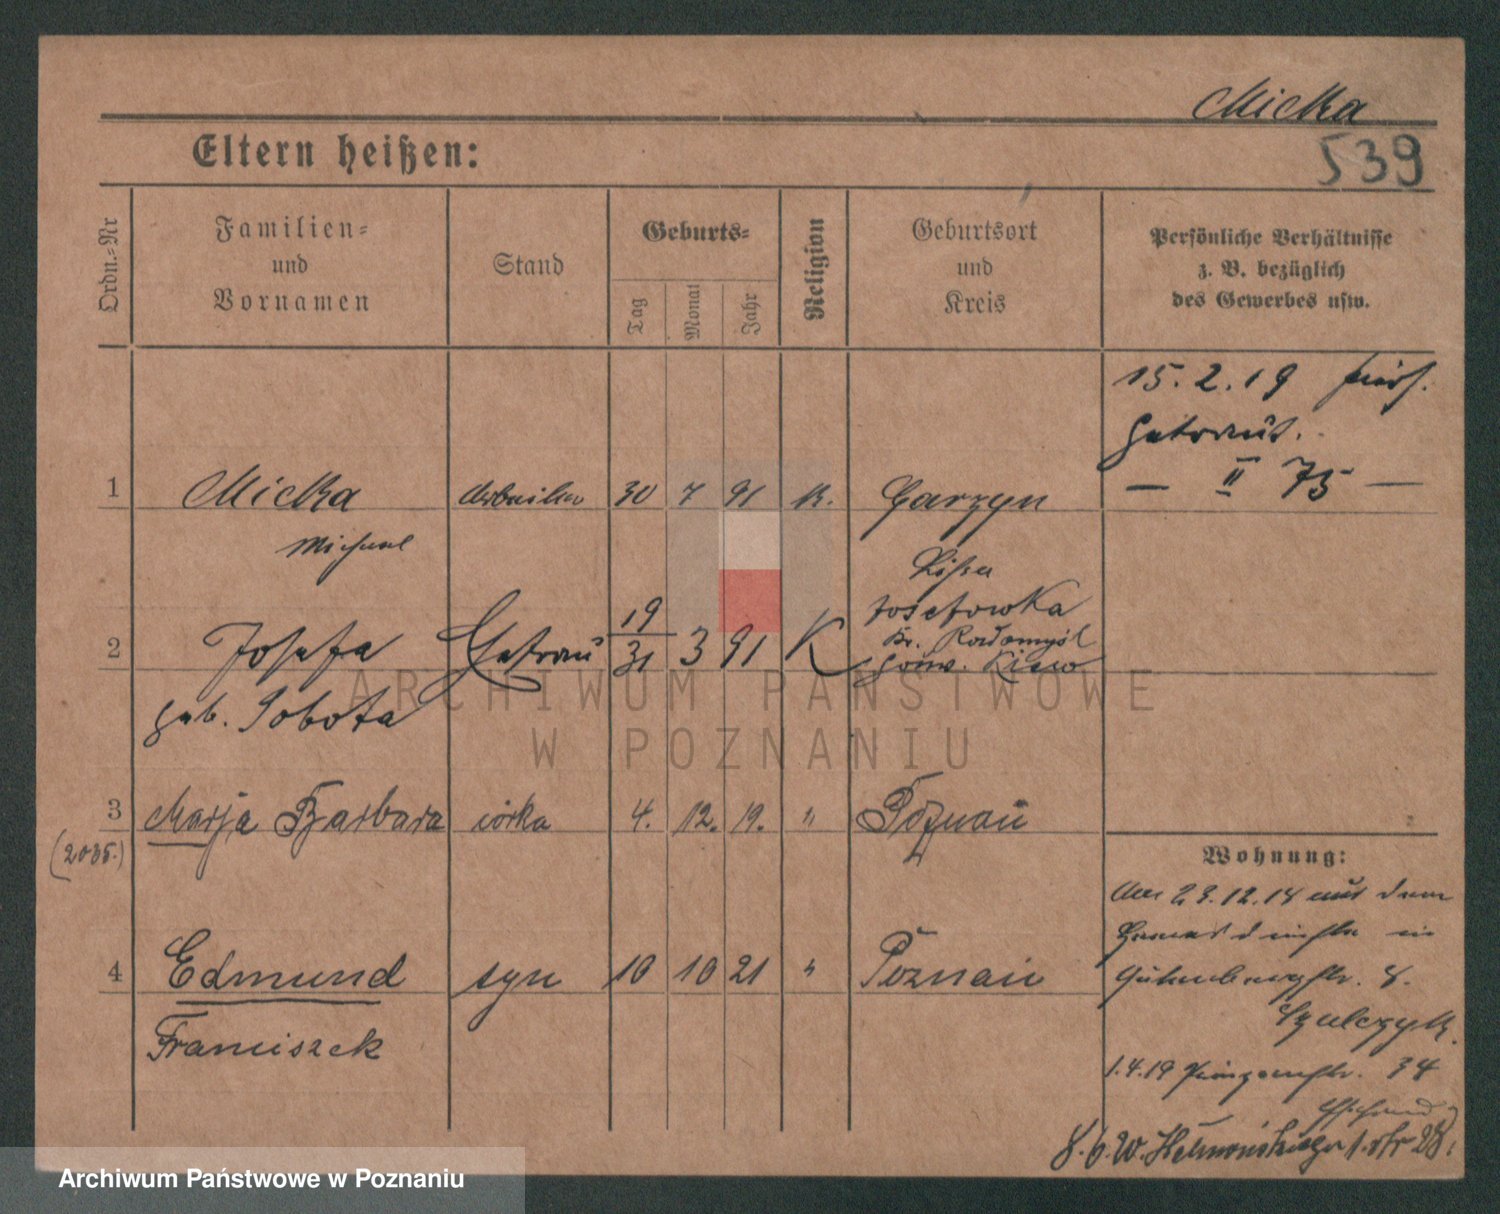 Micka
Eltern heißen:
539
Ordn.-Nr
Familien-
und
Vornamen
Stand
Geburts-
Tag
Monat
Jahr
Religion
Geburtsort
und
Kreis
Persönliche Verhältnisse
z. B. bezüglich
des Gewerbes usw.
15. 2. 19
Getraut.
— II 75 —
1 Micka Arbeiter 30 7 91 K. Garzyn
Michael
Lissa
2 Josefa Getraut 19/31 3 91 K Josefowka
Kr. Radomyśl
Gouv. Kiew
geb. Sobota
3 Marja Barbara córka 4. 12. 19. " Poznań
(2035.)
4 Edmund syn 10 10 21 " Poznań
Franciszek
Wohnung:
23.12.18 aus dem
in
8.
Szulczyk.
1.4.19 34
8. 6. W. 28
ARCHIWUM PAŃSTWOWE
W POZNANIU
Archiwum Państwowe w Poznaniu